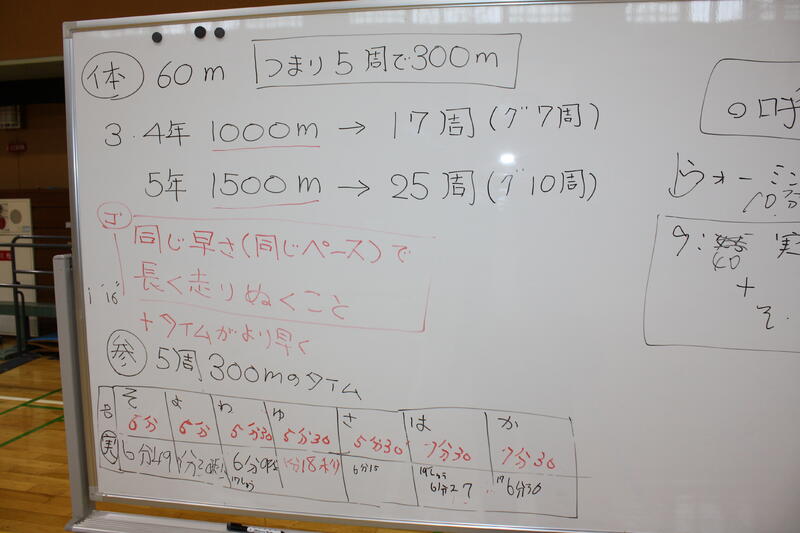 体 60m つまり5周で300m
3.4年 1000m → 17周(グ7周)
5年 1500m → 25周(グ10周)
ゴ 同じ早さ(同じペース)で
長く走りぬくこと
+タイムがより早く
参 5周300mのタイム
そ よ わ ゆ さ は か
6分 6分 5分30 5分30 5分30 7分30 7分30
実 6分49 6分15 6分27 6分30
○呼
うォーミン
10分
9:
40 実
+
そ.